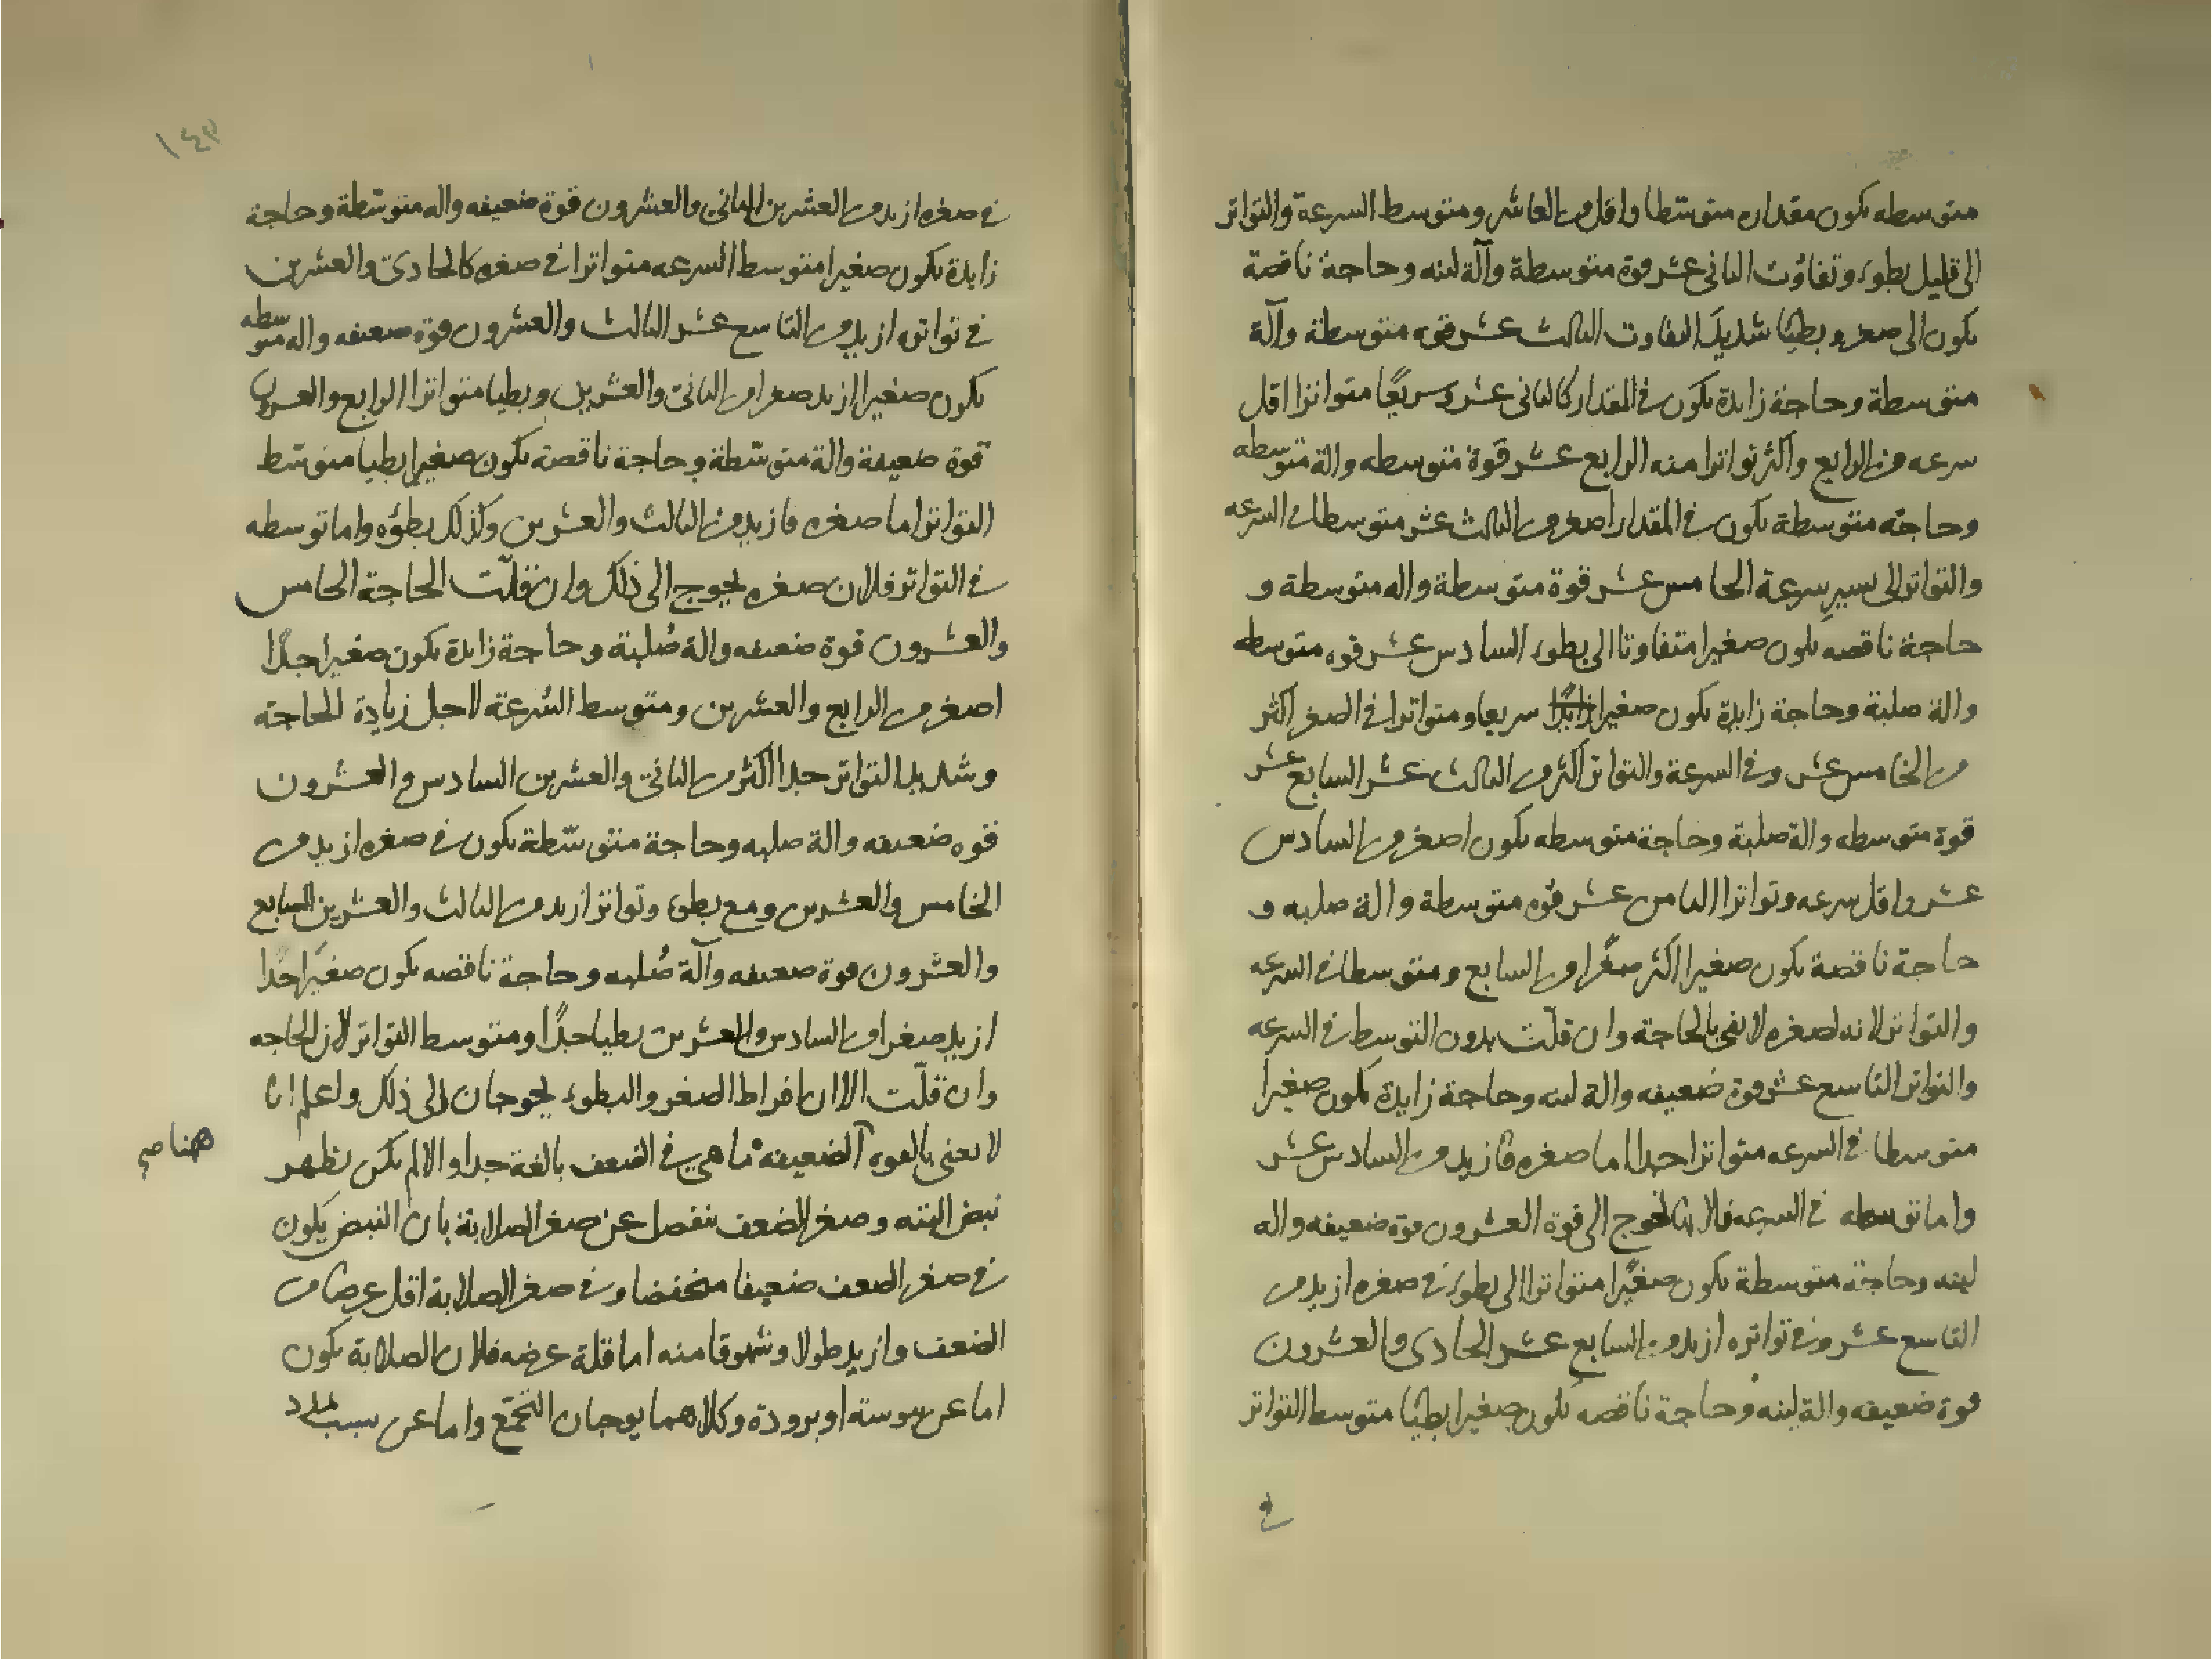 متوسطه يكون مقداره متوسّطا واقل من العاشر ومتوسط السرعة والتواتر
الى قليل بطوء وتفاوُت الثانى عشر قوة متوسطة وآلة لينه وحاجة ناقصة
يكون الى صغر وبطيًا شديد التفاوت الثالث عشر قوه متوسطة وآلة
متوسطة وحاجة زايدة يكون فى المقدار كالثانى عشر وسريعًا متواترا اقل
سرعه من الرابع واكثر تواترا منه الرابع عشر قوة متوسطه والة متوسطه
وحاجته متوسطة يكون فى المقدار اصغر من الثالث عشر متوسطا فى السرعه
والتواتر الى يسير سرعة الخامس عشر قوة متوسطة واله متوسطة و
حاجة ناقصه يكون صغيرا متفاوتا الى بطوء السادس عشر قوه متوسطه
والة صلبة وحاجة زايدة يكون صغيرا سريعا ومتواترا فى الصغر اكثر
من الخامس عشر وفى السرعة والتواتر اكثر من الثالث عشر السابع عشر
قوة متوسطه والة صلبة وحاجة متوسطه يكون اصغر من السادس
عشر واقل سرعه وتواترا الثامن عشر قوه متوسطة والة صلبه و
حاجة ناقصة يكون صغيرا اكثر صغرًا من السابع ومتوسطا فى السرعه
والتواتر لانه لصغره لا يفى بالحاجة وان قلّت بدون التوسط فى السرعه
والتواتر التاسع عشر قوة ضعيفه والة لينه وحاجة زايدة يكون صغيرا
متوسطا فى السرعه متواترا جدا اما صغره فازيد من السادس عشر
واما توسطه فى السرعه فلانها تحوج الى قوة العشرون قوة ضعيفه واله
لينه وحاجة متوسطة يكون صغيًرا متواترا الى بطوء فى صغره ازيد من
التاسع عشر وفى تواتره ازيد من السابع عشر الحادى والعشرون
قوة ضعيفه والة لينه وحاجة ناقصه يكون صغيرا بطيًا متوسط التواتر
فى
١٤٣
فى صغره ازيد من العشرين الثانى والعشرون قوة ضعيفه واله متوسّطة وحاجة
زايدة يكون صغيرا متوسط السرعه متواترا فى صغره كالحادى والعشرين
فى تواتره ازيد من التاسع عشر الثالث والعشرون قوة ضعيفه واله متوسطه
يكون صغيرا ازيد صغرا من الثانى والعشرين وبطيا متواترا الرابع والعشرون
قوة ضعيفة والة متوسّطة وحاجة ناقصة يكون صغيرا بطيا متوسّط
التواتر اما صغره فازيد من الثالث والعشرين وكذلك بطؤه واما توسطه
فى التواتر فلان صغره يحوج الى ذلك وان قلّت الحاجة الخامس
والعشرون قوة ضعيفه والة صُلبة وحاجة زايدة يكون صغيرا جدا
اصغر من الرابع والعشرين ومتوسط السُرعة لاجل زيادة الحاجته
وشديد التواتر جدا اكثر من الثانى والعشرين السادس والعشرون
قوه ضعيفه والة صلبه وحاجة متوسّطة يكون فى صغره ازيد من
الخامس والعشرين ومع بطوء وتواتر ازيد من الثالث والعشرين السابع
والعشرون قوة ضعيفه وآلة صُلبه وحاجة ناقصه يكون صغيَرا جدا
ازيد صغرا من السادس والعشرين بطيا جدًا ومتوسط التواتر لان الحاجه
وان قلّت الا ان افراط الصغر والبطوء يحوجان الى ذلك واعلم انا
لا نعنى بالقوه الضعيفه ما هى فى الضعف بالغة جدا والا لم يكن يظهر
ههنا صح
نبض البته وصغر الضعف ينفصل عن صغر الصلابة بان النبض يكون
فى صغر الضعف ضعيفا منخفضا وفى صغر الصلابة اقل عرضا من
الضعف وازيد طولا وشهوقا منه اما قلة عرضه فلان الصلابة يكون
اما عن يبوسته او برودة وكلاهما يوجبان التجمّع واما عن سبب تمدد